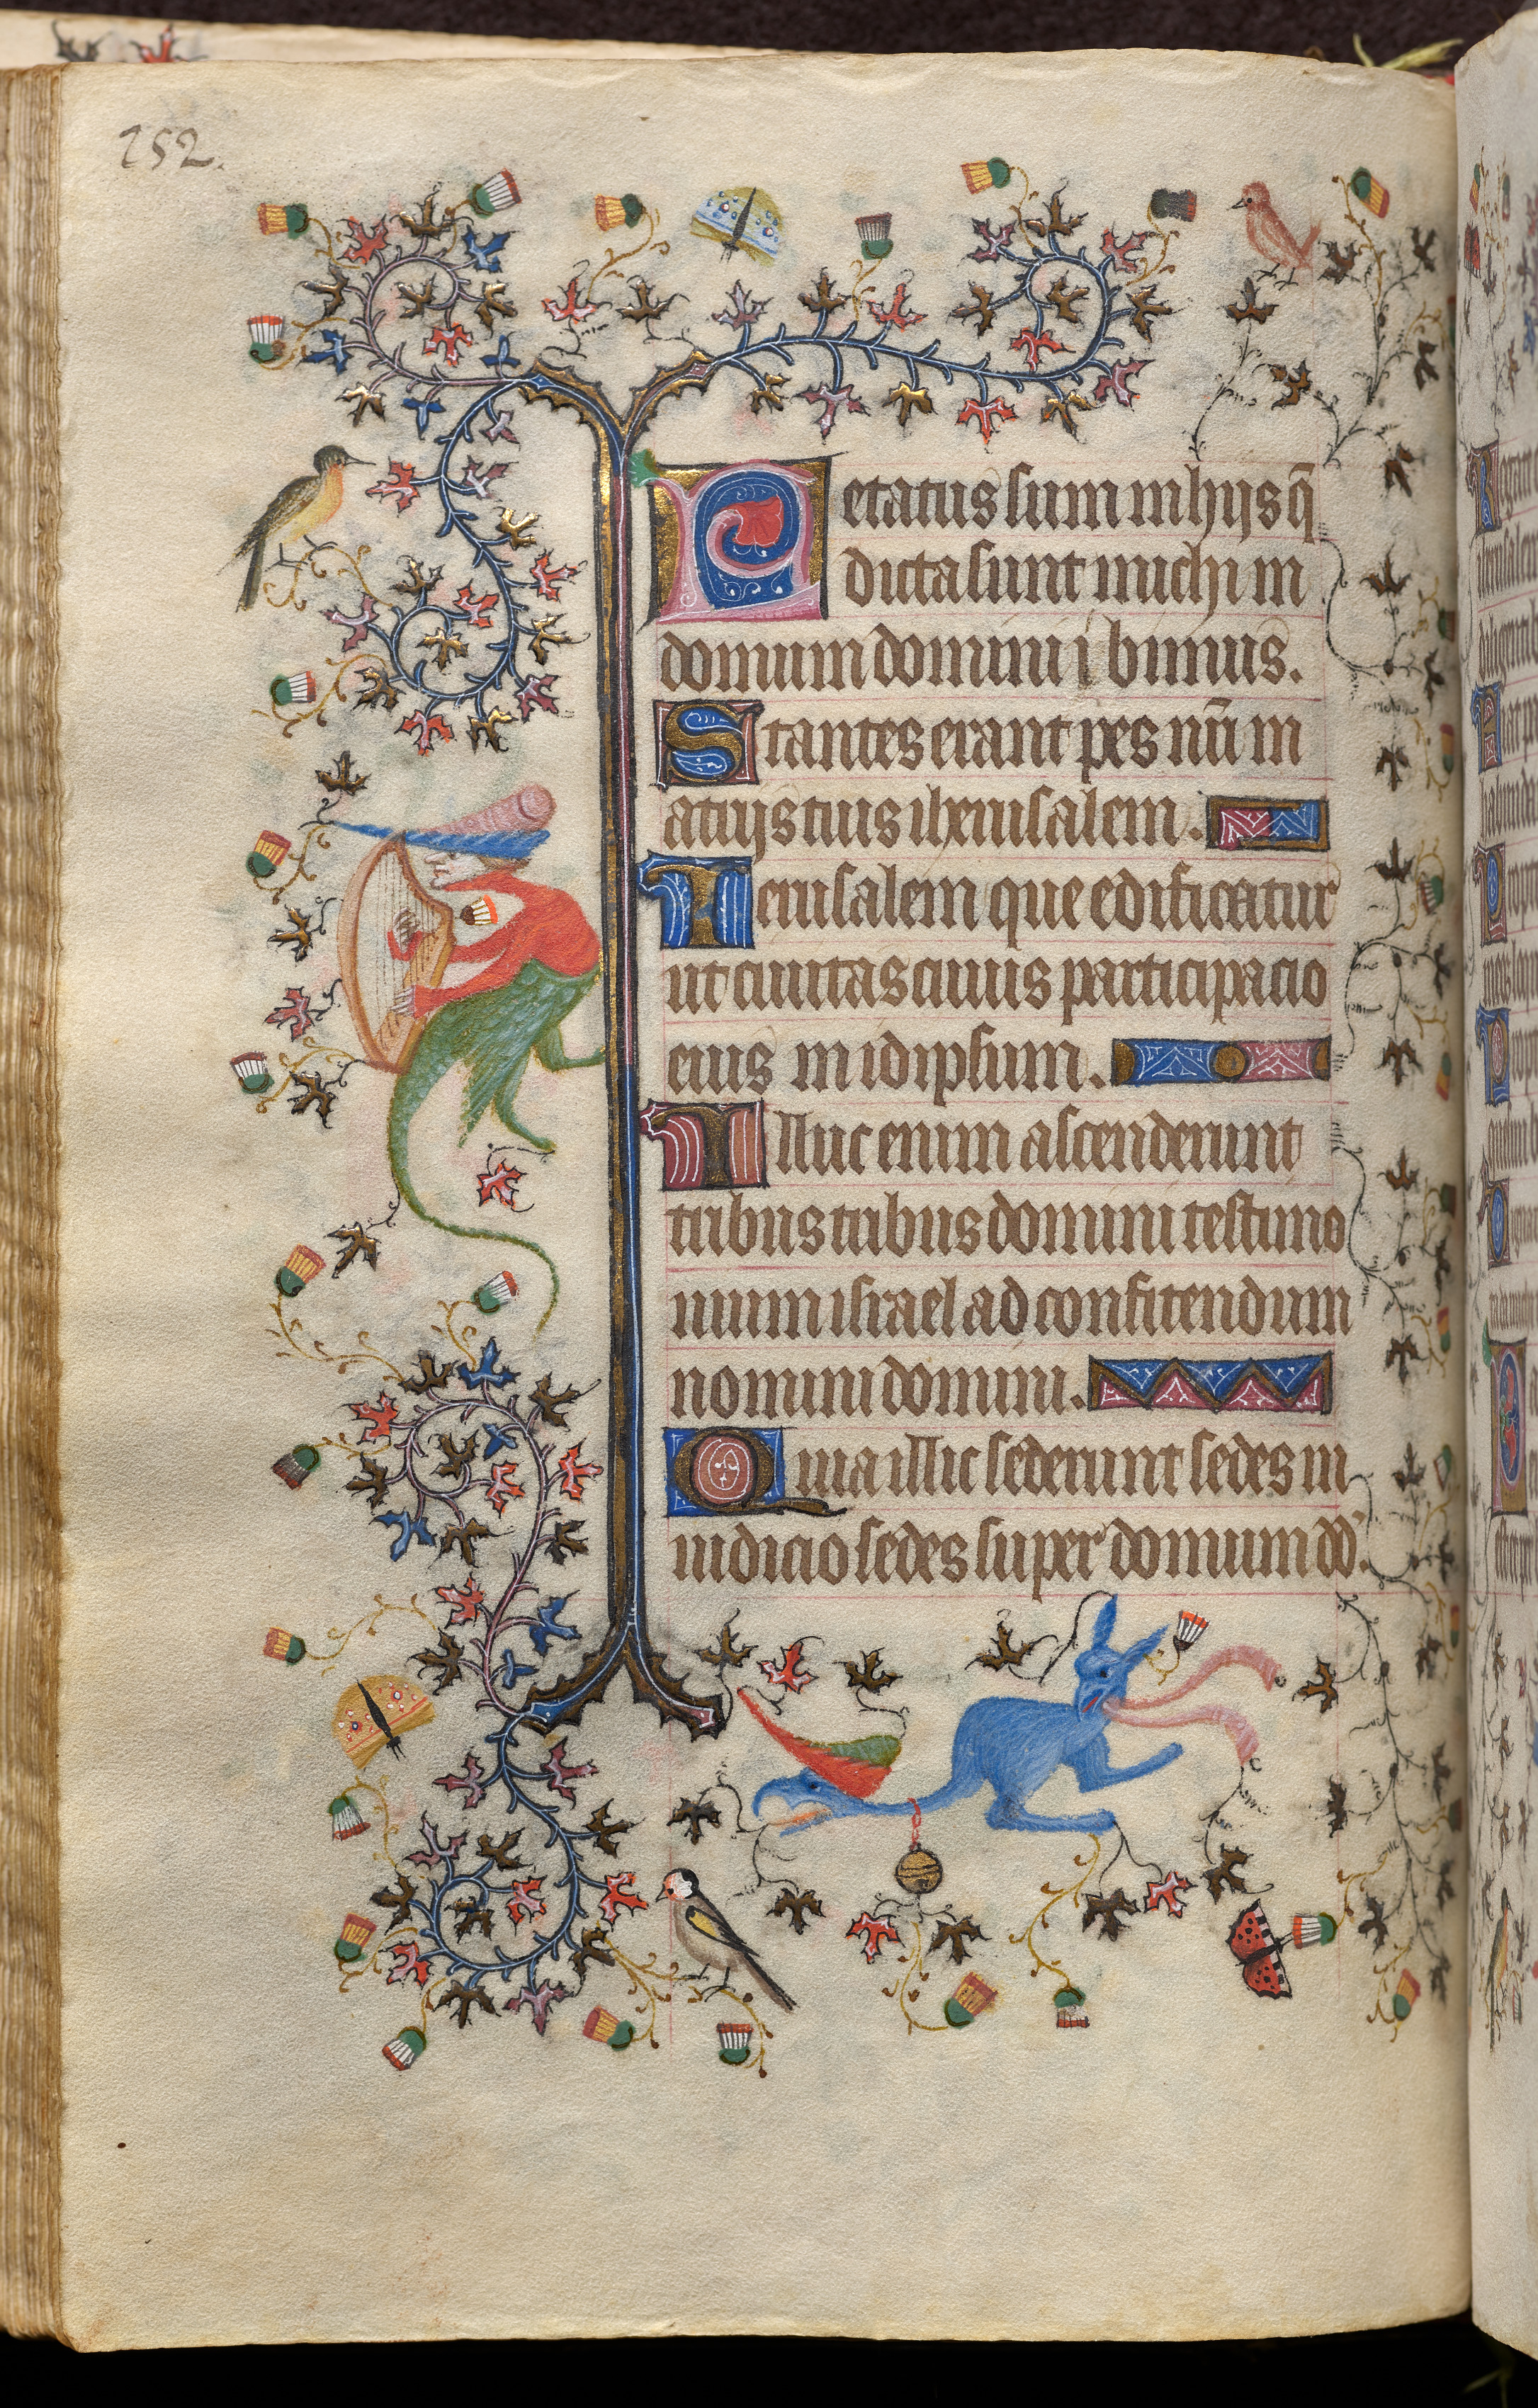 252.
Letatus sum in hijs q̄
dicta sunt michi in
domum domini ibimus.
Stantes erant pes nr̄i in
atrijs tuis iherusalem.
Ierusalem que edificatur
ut ciuitas cuius participacio
eius in idipsum.
Illuc enim ascenderunt
tribus tribus domini testimo
nium israel ad confitendum
nomini domini.
Quia illic sederunt sedes in
iudicio sedes super domum dd'.